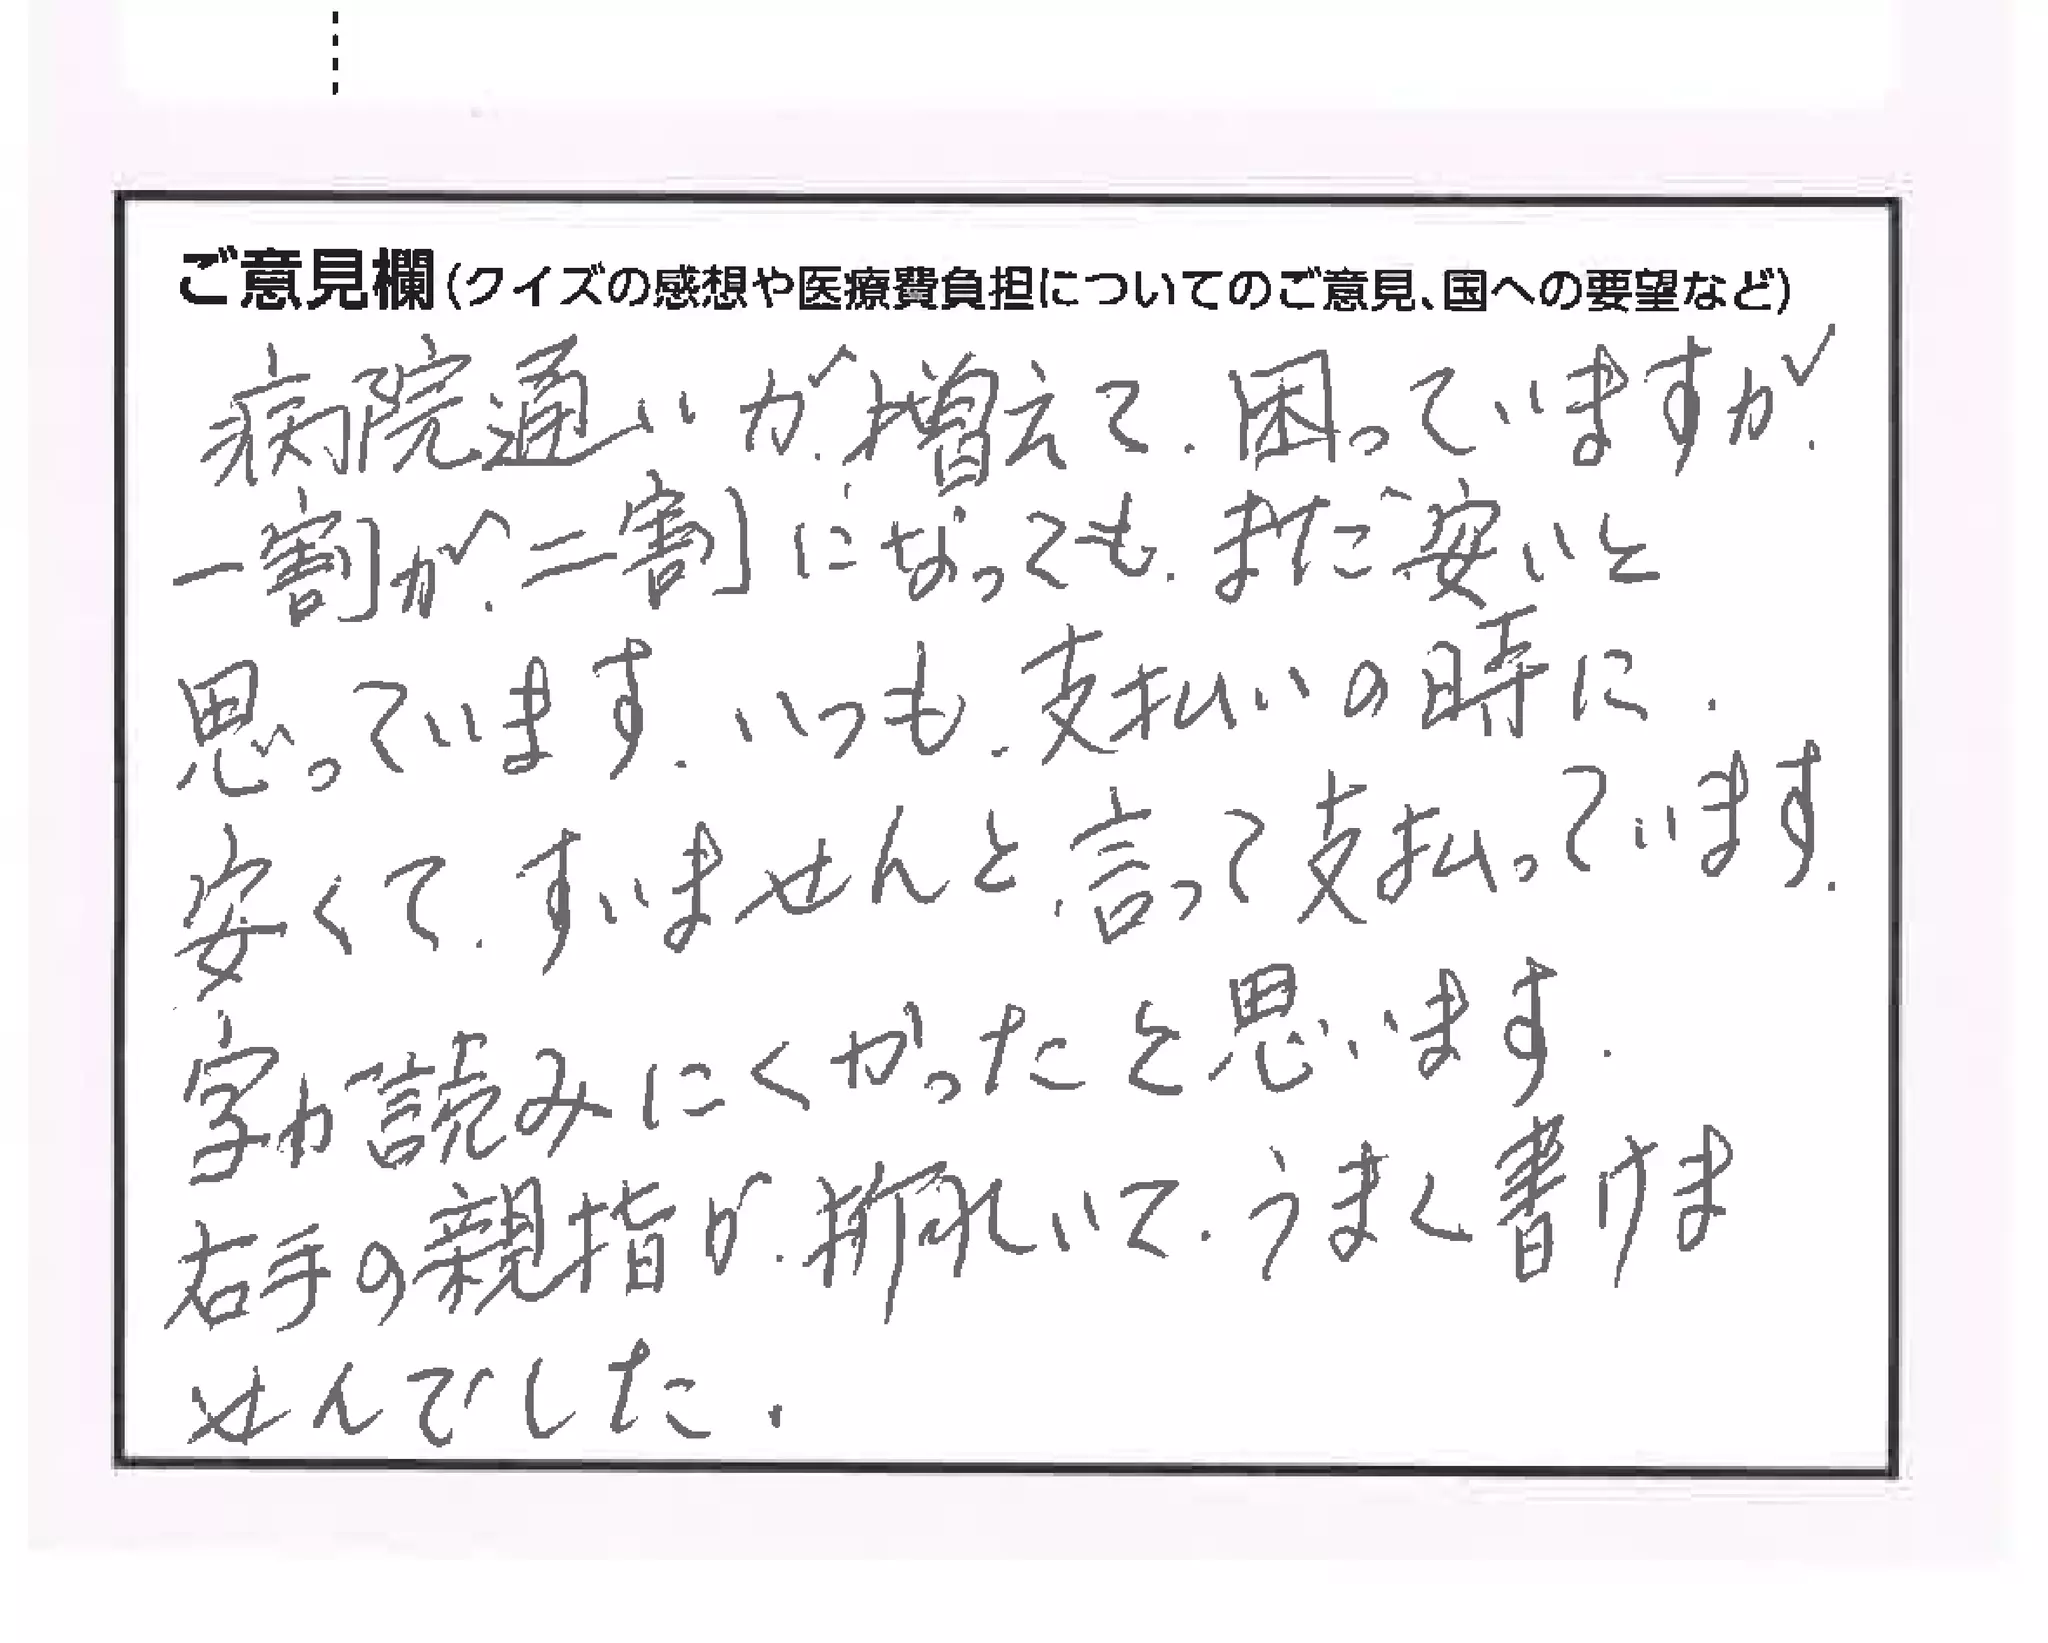 ご意見欄(クイズの感想や医療費負担についてのご意見、国への要望など)
病院通いが、増えて、困っていますが、
一割が、二割になっても、まだ、安いと
思っています。いつも、支払いの時に、
安くて、すいませんと、言って支払っています。
字が読みにくかったと思います。
右手の親指が、折れいて、うまく書けま
せんでした。